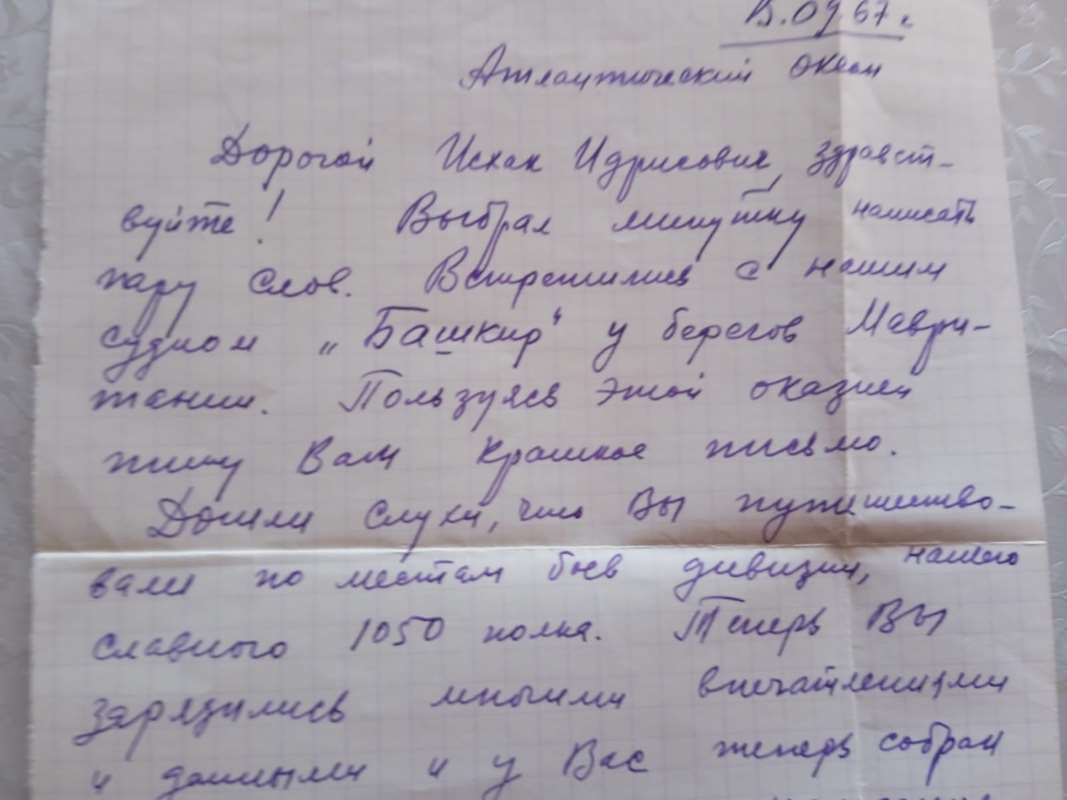 09.67 г.
Атлантический океан
Дорогой Исхак Идрисович, здравст-
вуйте! Выбрал минутку написать
пару слов. Встретились с нашим
судном „Башкир" у берегов Маври-
тании. Пользуясь этой оказией
пишу Вам краткое письмо.
Дошли слухи, что Вы путешество-
вали по местам боев дивизии, нашего
славного 1050 полка. Теперь Вы
зарядились многими впечатлениями
и данными и у Вас теперь собран